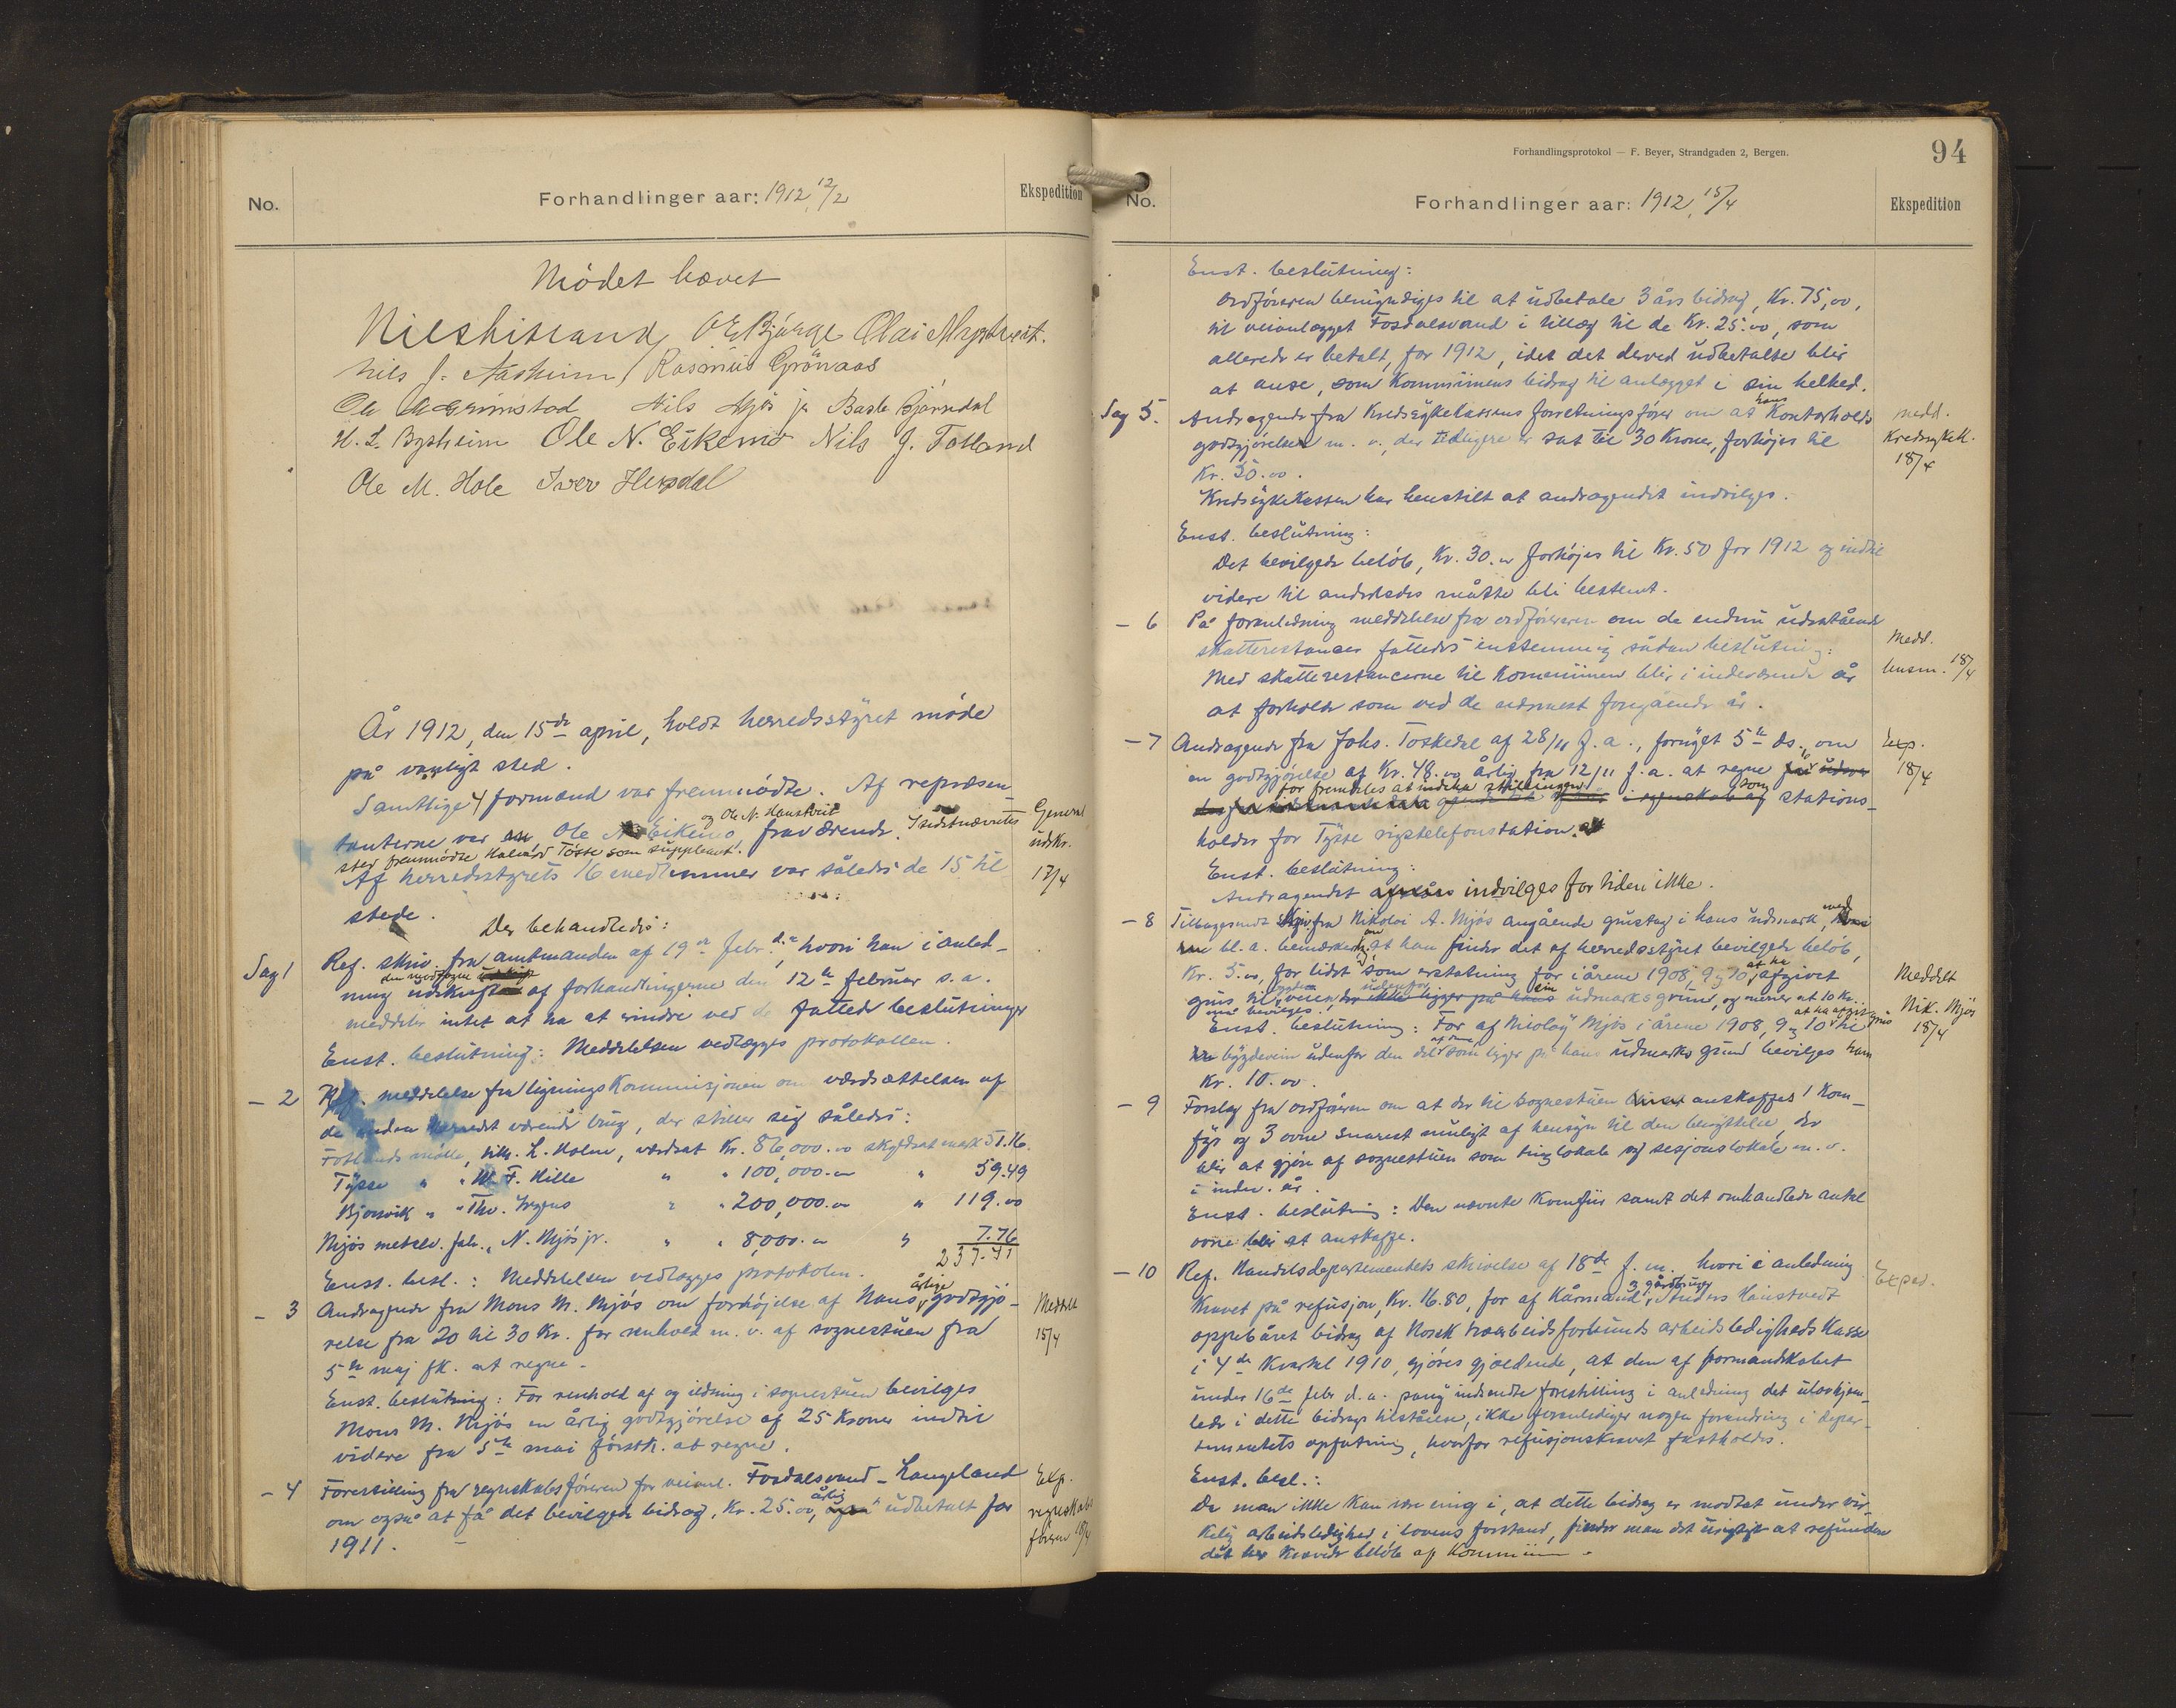 No.
Forhandlinger aar: 1912, 12/2
Ekspedition
Mødet hævet
Nils Birkeland O E Bjørge Olai Myrhveit.
Nils J. Aasheim Rasmus Grönaas
Ole Grimstad Nils Mjøs jr Baste Bjørndal
H. L. Bysheim Ole N. Eikemo Nils J. Fotland
Ole M. Hole Iver Hisdal
År 1912, den 15de april, holdt herredsstyret møde
på vanligt sted.
Samtlige 4 formænd var fremmødte. Af repræsen-
tanterne var Ole N. Eikemo og Ole N. Haustveit fraværende. I sidstnævntes
sted fremmødte Halvard Tösse som suppleant.
Af herredsstyrets 16 medlemmer var således de 15 til
stede.
General
udskr.
17/4
Der behandledes:
Sag 1 Ref. skriv. fra amtmanden af 19de febr. d.a., hvori han i anled-
ning den medfølgende udskrift af forhandlingerne den 12te februar s.a.
meddeler intet at ha at erindre ved de fattede beslutninger
Enst. beslutning: Meddelelsen vedlægges protokollen.
– 2 Ref. meddelelse fra ligningskommisjonen om værdsættelsen af
de inden herredet værende brug, der stiller sig således:
Fotlands mölle, tilh. L. Holm, værdsat Kr. 86,000.00 skyldsat mark 51.16.
Tysse " " M. F. Hille " " 100,000.00 " 59.49
Bjørsvik " " Thv. " " 200,000.00 " 119.00
Mjøs metalv. fab. " N. Mjøs jr. " " 8,000.00 " 7.76
237.41
Enst. besl.: Meddelelsen vedlægges protokolen.
– 3 Andragende fra Mons M. Mjøs om forhøjelse af hans årlige godtgjø-
relse fra 20 til 30 Kr. for renhold m. v. af sognestuen fra
5te maj fk. at regne.
Enst. beslutning: For renhold af og ildning i sognestuen bevilges
Mons M. Mjøs en årlig godtgjørelse af 25 Kroner indtil
videre fra 5te mai førstk. at regne.
Meddelt
15/4
– 4 Forestilling fra regnskabsføreren for veianl. Fosdalsvand – Langeland
om også at få det bevilgede bidrag, Kr. 25.00, årlig udbetalt for
1911.
Exp.
regnskabs
føreren 18/4
Forhandlingsprotokol — F. Beyer, Strandgaden 2, Bergen.
94
No.
Forhandlinger aar: 1912, 15/4
Ekspedition
Enst. beslutning:
Ordføreren bemyndiges til at udbetale 3 års bidrag, Kr. 75,00,
til veianlægget Fosdalsvand i tillæg til de Kr. 25.00, som
allerede er betalt, for 1912, idet det derved udbetalte blir
at anse, som Kommunens bidrag til anlægget i sin helhed.
Sag 5. Andragende fra Kredssykekassens forretningsfører om at hans Kontorholds
godtgjørelse m. v., der tidligere er sat til 30 Kroner, forhøjes til
Kr. 50.00.
Kredssykekassen har henstilt at andragendet indvilges.
Medd.
Kredssykek.
18/4
Enst. beslutning:
Det bevilgede beløb, Kr. 30.00 forhøjes til Kr. 50 for 1912 og indtil
videre til anderledes måtte bli bestemt.
– 6 På foranledning meddelelse fra ordføreren om de endnu udestående
skatterestancer fattedes enstemmig sådan beslutning:
Med skatterestancerne til Kommunen blir i indeværende år
at forholde som ved de sidstnest foregående år.
Medd.
lensm. 18/4
– 7 Andragende fra Johs. Toskedal af 28/11 f. a., fornyet 5te ds., om
en godtgjørelse af Kr. 48.00 årlig fra 12/11 f. a. at regne
for fremdeles at indeha stillingen som stations-
holder for Tysse rigstelefonstation.
Enst. beslutning:
Andragendet indvilges for tiden ikke.
Exp.
18/4
– 8 Tilbagesendt skriv fra Nikolai A. Mjøs angående grustag i hans udmark, med
bl. a. bemærkning om at han finder det af herredsstyret bevilgede beløb,
Kr. 5.00, for lidet som erstatning for i årene 1908, 9 og 10 at ha afgivet
grus til bygdeveien udenfor sin udmarks grund, og mener at 10 Kr.
må bevilges.
Enst. beslutning: For af Nicolay Mjøs i årene 1908, 9 og 10 at ha afgit grus til
bygdeveien udenfor den del af den som ligger på hans udmarks grund bevilges ham
Kr. 10.00.
Meddelt
Nik. Mjøs
18/4
– 9 Forslag fra ordføreren om at der til sognestuen anskaffes 1 Kom-
fyr og 3 ovne snarest muligt af hensyn til den benyttelse, der
blir at gjøre af sognestuen som tinglokale og sesjonslokale m. v.
i indev. år.
Enst. beslutning: Den nævnte Komfyr samt det omhandlede antal
ovne blir at anskaffe.
– 10 Ref. Handelsdepartementets skrivelse af 18de f. m. hvori i anledning
Kravet på refusjon, Kr. 16.80, for af Kårmand, gårdbruger Anders Haustvedt
oppebåret bidrag af Norsk træarbeidsforbunds arbeidsledighedskasse
i 4de Kvartal 1910, gjøres gjældende, at den af formandskabet
under 16de febr d. a. påny indsendte forestilling i anledning det ulovhjem-
lede i dette bidrags tilståelse, ikke foranlediger nogen forandring i depar-
tementets opfatning, hvorfor refusjonskravet fastholdes.
Exped.
Enst. besl.:
Da man ikke kan være enig i, at dette bidrag er modtat under vir-
kelig arbeidsledighed i lovens forstand, finder man det urigtigt at refundere
det her krævede beløb af Kommunen.